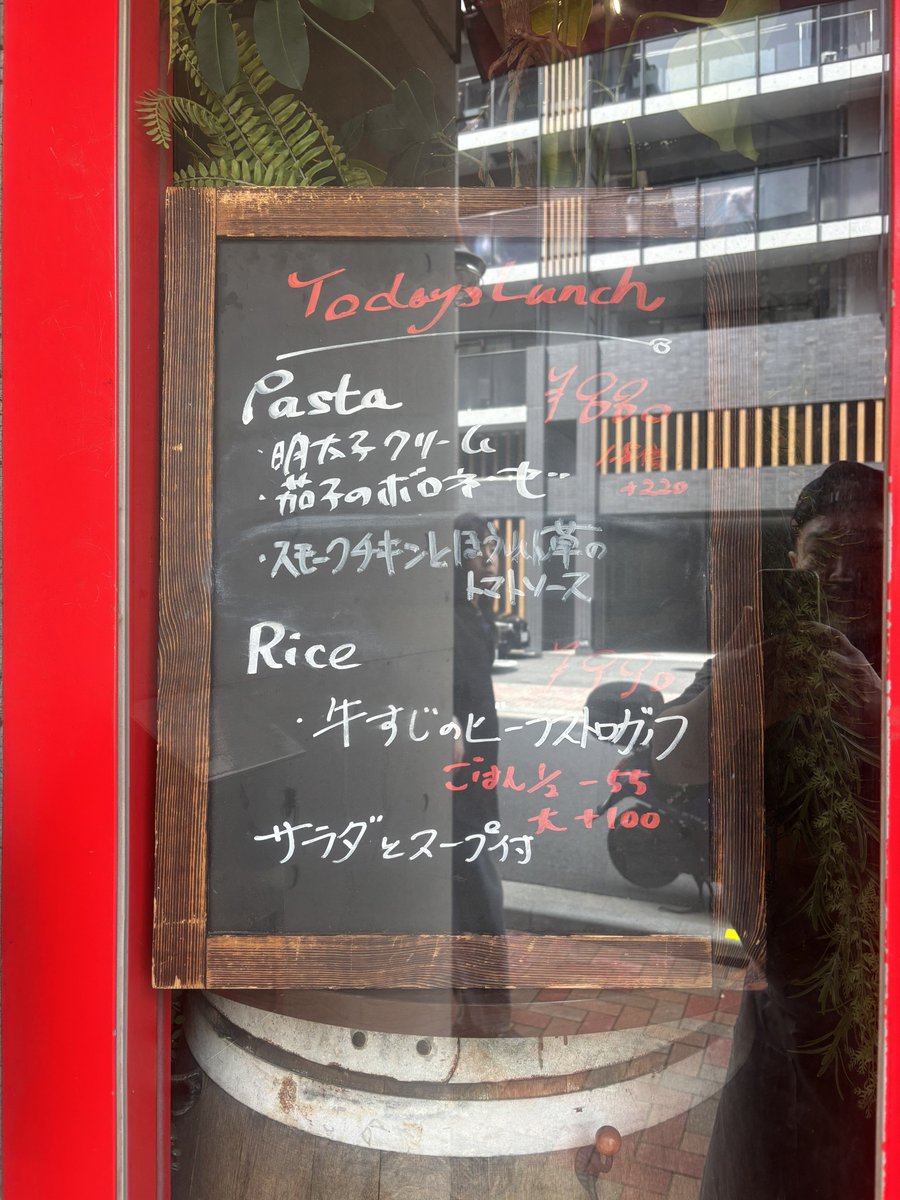 Todays Lunch
Pasta ¥880
・明太子クリーム
・茄子のボロネーゼ
+220
・スモークチキンとほうれん草の
トマトソース
Rice ¥990
・牛すじのビーフストロガノフ
ごはん1/2 -55
大 +100
サラダとスープ付